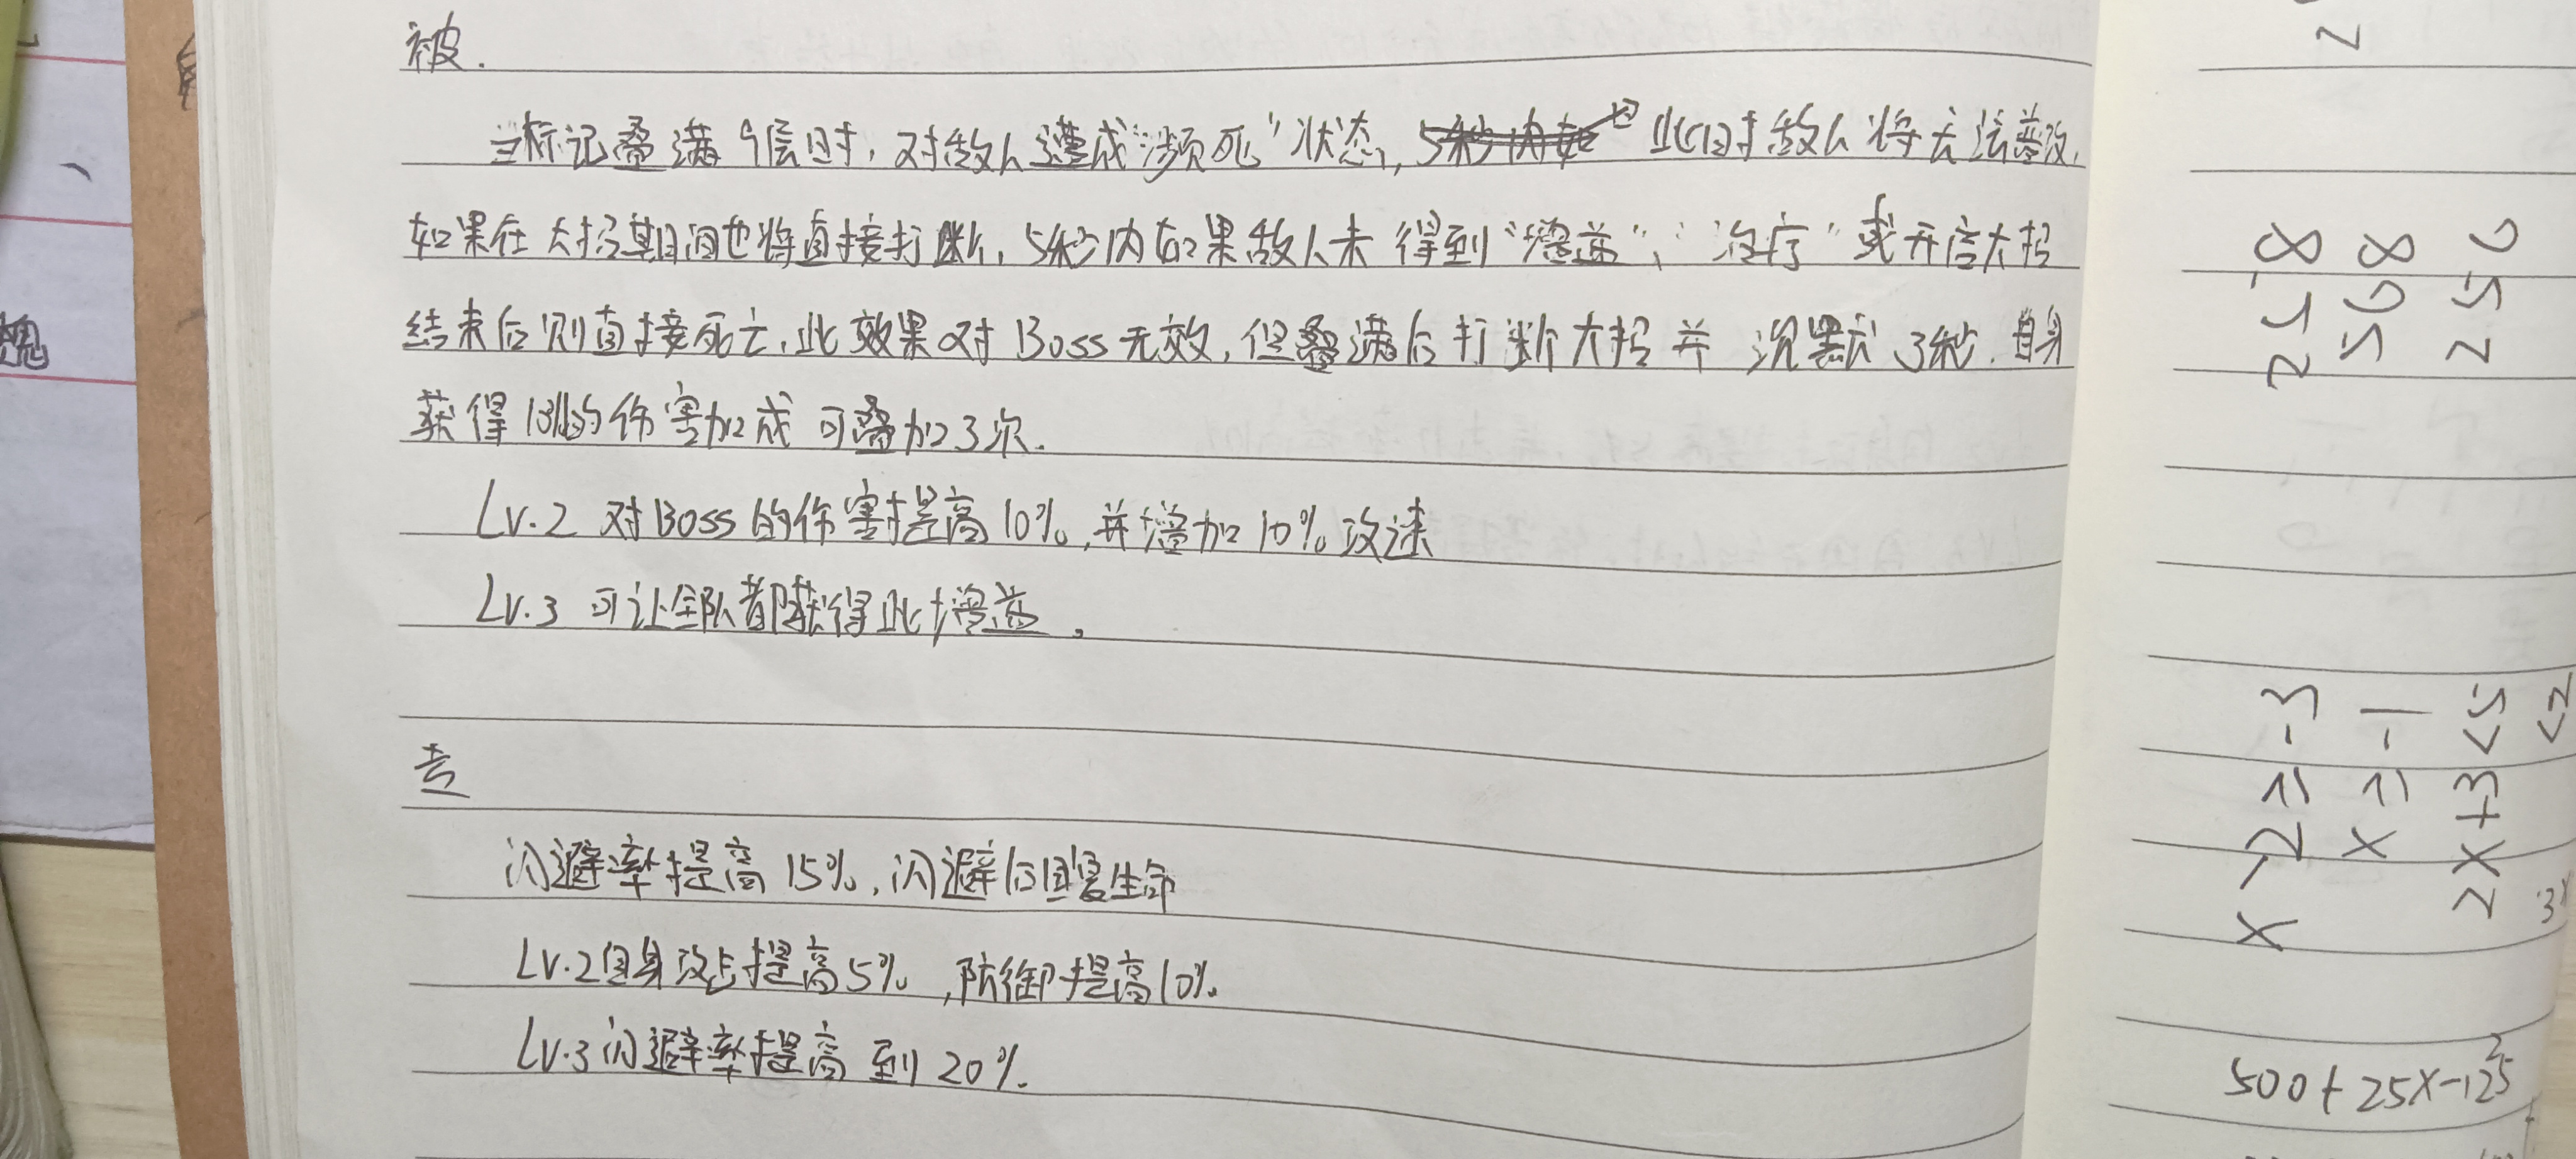 被.
当标记叠满9层时,对敌人遭成“濒死”状态,此时敌人将无法普攻,
如果在大招期间也将直接打断,5秒内如果敌人未得到“增益”、“治疗”或开启大招
结束后则直接死亡,此效果对Boss无效,但叠满后打断大招并沉默3秒.自身
获得 的伤害加成可叠加3次.
Lv.2 对Boss的伤害提高10%,并增加10%攻速
Lv.3 可让全队都获得此增益。
专
闪避率提高15%,闪避后回复生命
Lv.2自身攻击提高5%,防御提高10%
Lv.3闪避率提高到20%.
258
568
256
x-2≥-3
x≥-1
2x+3<5
<2
500+25x-125